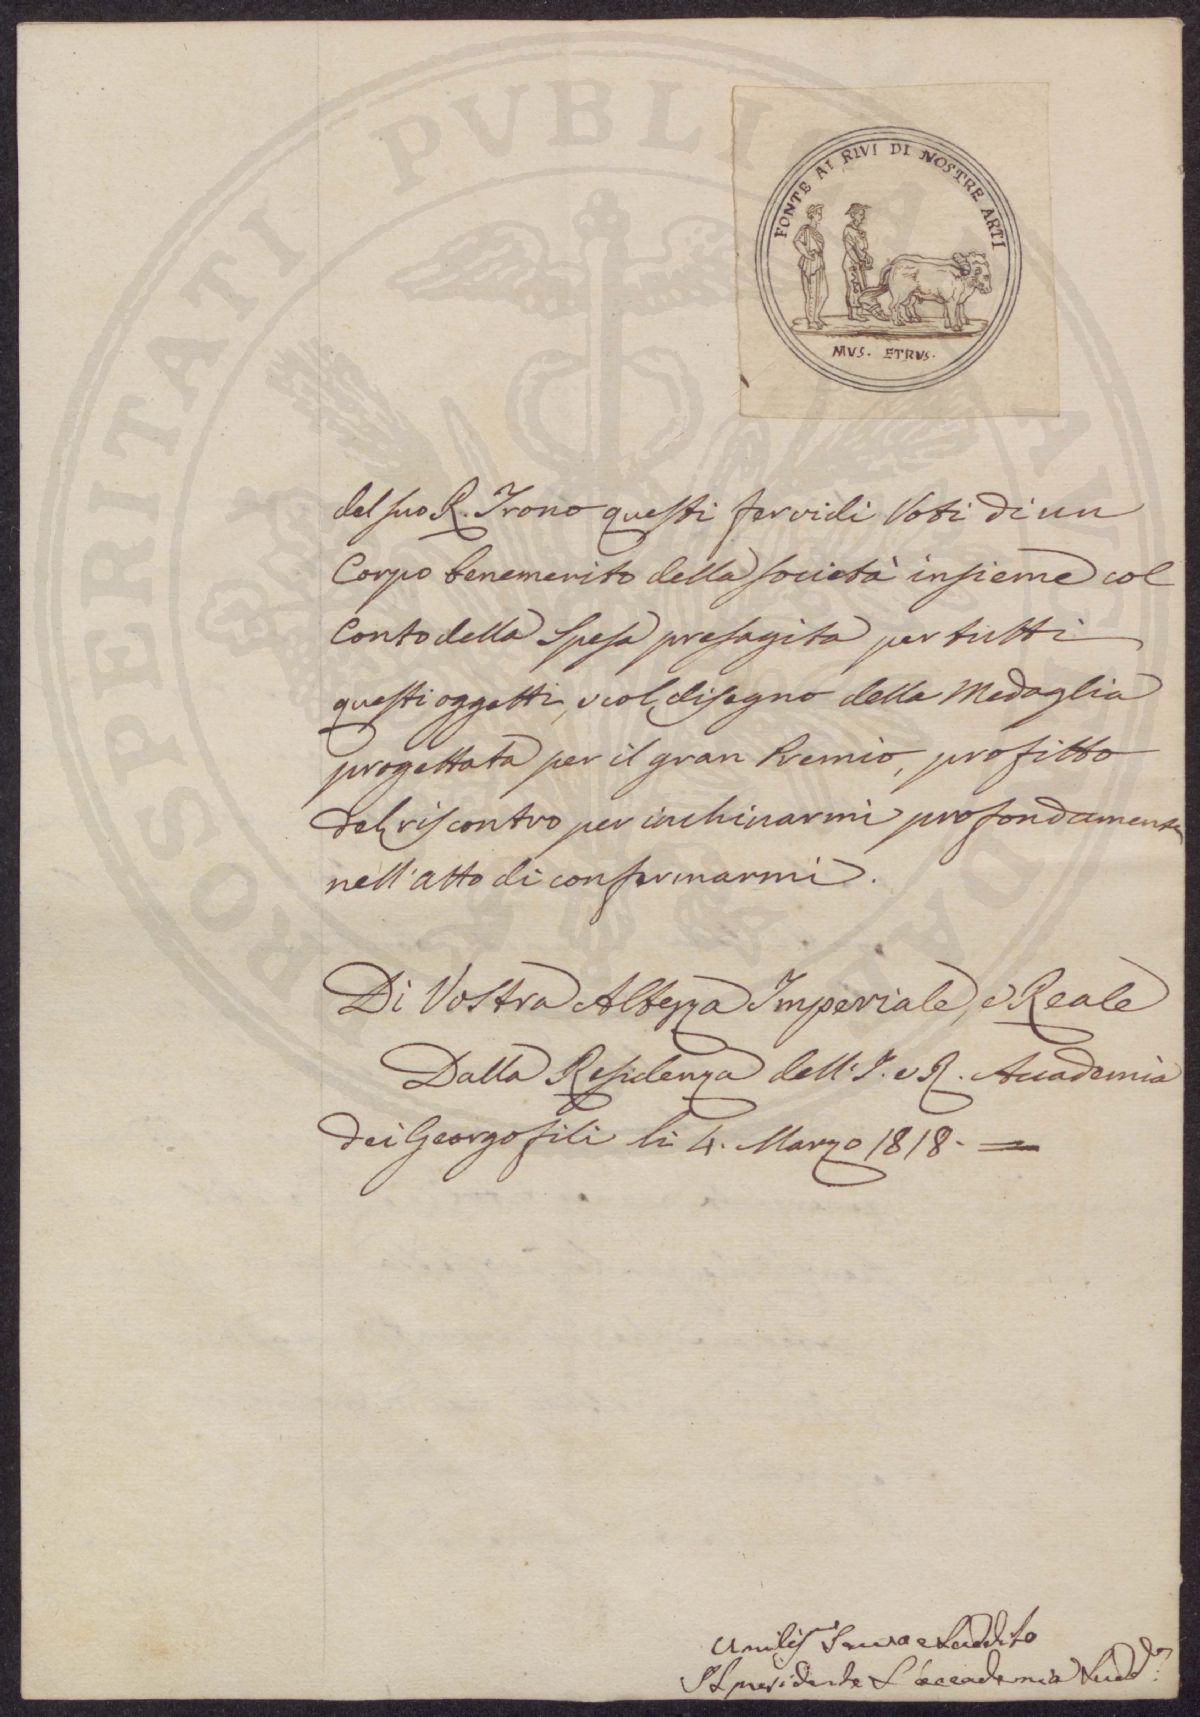 FONTE AI RIVI DI NOSTRE ARTI
MVS. ETRVS.
PROSPERITATI PVBLICAE AVGENDAE
del suo R. Trono questi fervidi Voti di un
Corpo benemerito della società insieme col
Conto della Spesa presagita per tutti
questi oggetti, e col disegno della Medaglia
progettata per il gran Premio, profitto
del riscontro per inchinarmi profondamente
nell'atto di confermarmi.
Di Vostra Altezza Imperiale, e Reale
Dalla Residenza dell'I. e R. Accademia
dei Georgofili li 4. Marzo 1818. =
Umilis Servo e Suddito
Il presidente L'accademia Sudd